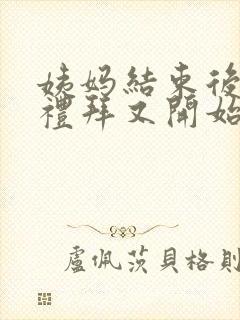 姨妈結束後
禮拜又開始
盧佩茨貝格則